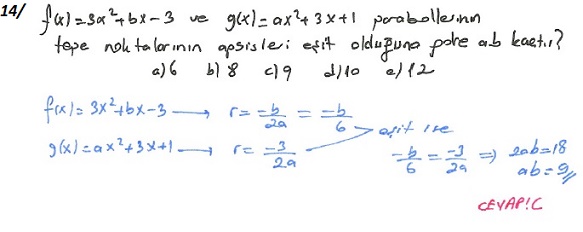 14/ f(x)=3x²+bx-3 ve g(x)=ax²+3x+1 parabollerinin
tepe noktalarının apsisleri eşit olduğuna göre ab kaçtır?
a) 6 b) 8 c) 9 d) 10 e) 12
f(x)=3x²+bx-3 → r = -b/2a = -b/6
g(x)=ax²+3x+1 → r = -3/2a
eşit ise
-b/6 = -3/2a ⇒ 2ab=18
ab=9//
CEVAP!C